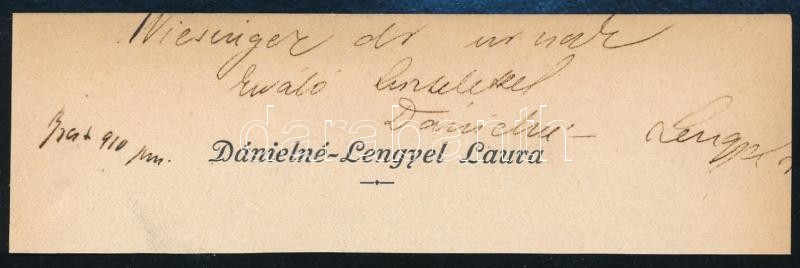 Wiesinger dr urnak
kiváló tisztelettel
Dánielné-Lengyel
Bpest 910
Dánielné-Lengyel Laura
darabanth